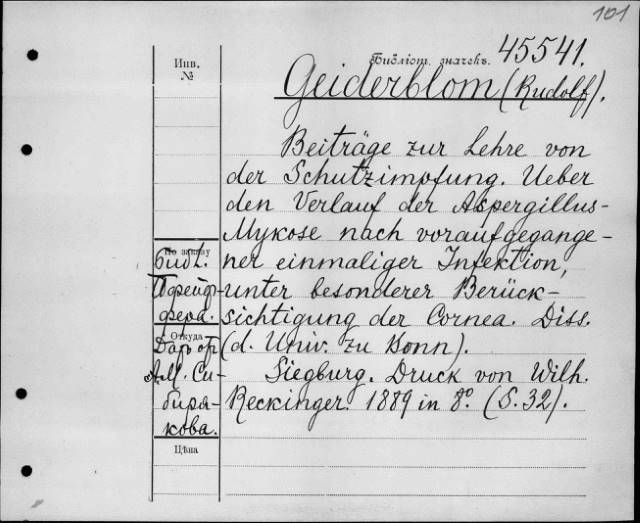 101
Инв. №
Библіот. значекъ. 45541.
Geiderblom (Rudolf).
Beiträge zur Lehre von
der Schutzimpfung. Ueber
den Verlauf der Aspergillus-
Mykose nach voraufgegange-
ner einmaliger Infektion,
unter besonderer Berück-
sichtigung der Cornea. Diss.
(d. Univ. zu Bonn).
Siegburg. Druck von Wilh.
Reckinger. 1889 in 8º. (S. 32).
По заказу
Библ.
Пфейф-
фера.
Откуда
Даръ отъ
А.М. Си-
биря-
кова.
Цѣна